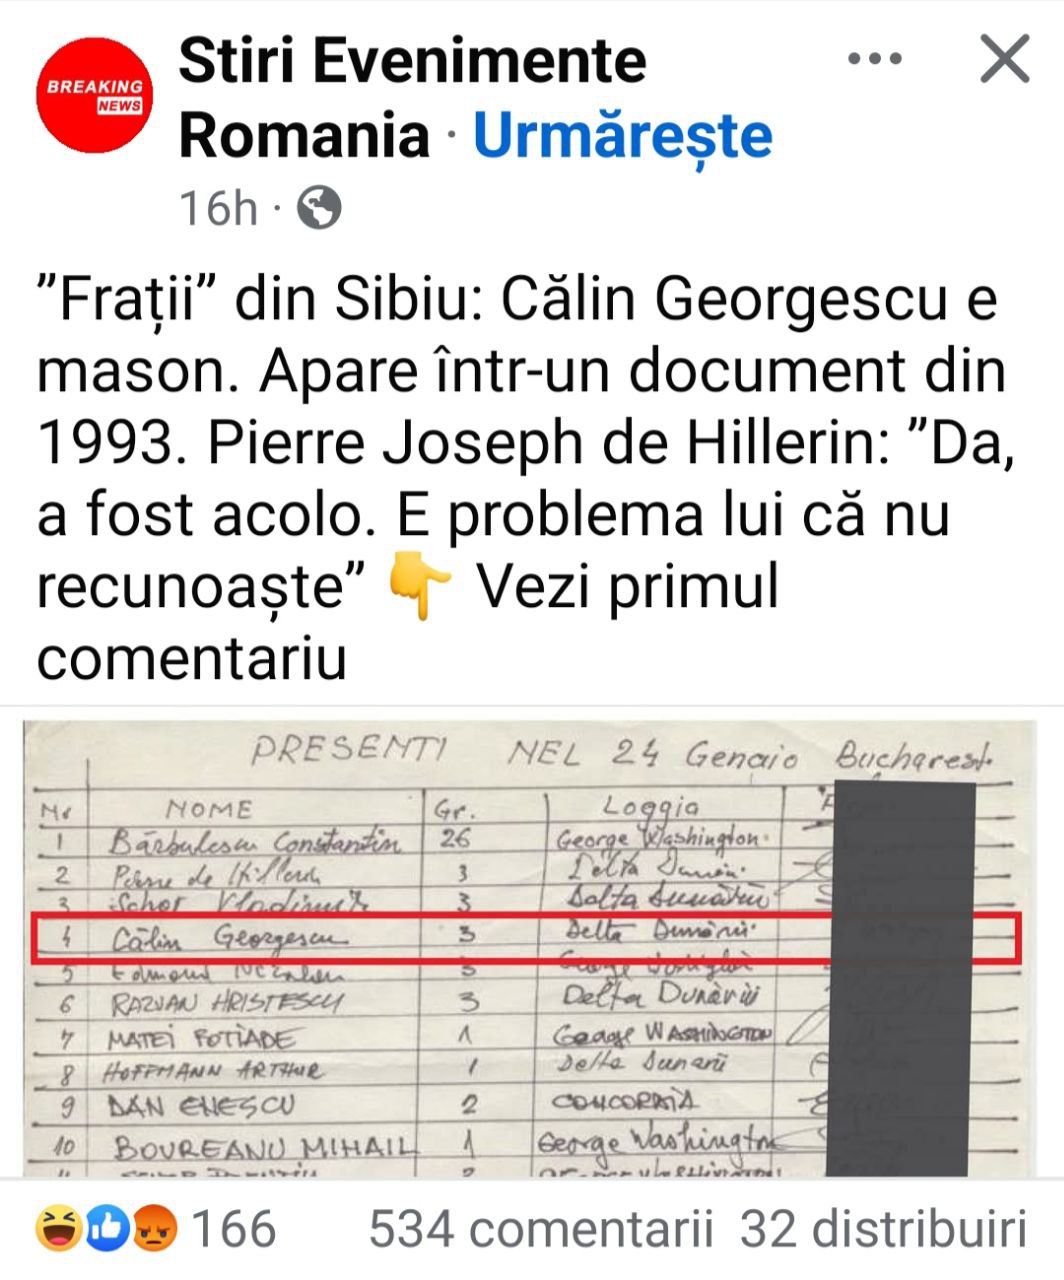 BREAKING
NEWS
Stiri Evenimente
Romania · Urmărește
16h ·
”Frații” din Sibiu: Călin Georgescu e
mason. Apare într-un document din
1993. Pierre Joseph de Hillerin: ”Da,
a fost acolo. E problema lui că nu
recunoaște” 👇 Vezi primul
comentariu
PRESENTI NEL 24 Genaio Bucharest.
Nr NOME Gr. Loggia
1 Bărbulescu Constantin 26 George Washington
2 de 3 Delta
3 Schor Vladimir 3 Delta Dunării
4 Călin Georgescu 3 Delta Dunării
5 Edmond 3 George
6 RAZVAN HRISTESCU 3 Delta Dunării
7 MATEI FOTIADE 1 George WASHINGTON
8 HOFFMANN ARTHUR 1 Delta Dunării
9 DAN ENESCU 2 CONCORDIA
10 BOUREANU MIHAIL 1 George Washington
11
166 534 comentarii 32 distribuiri